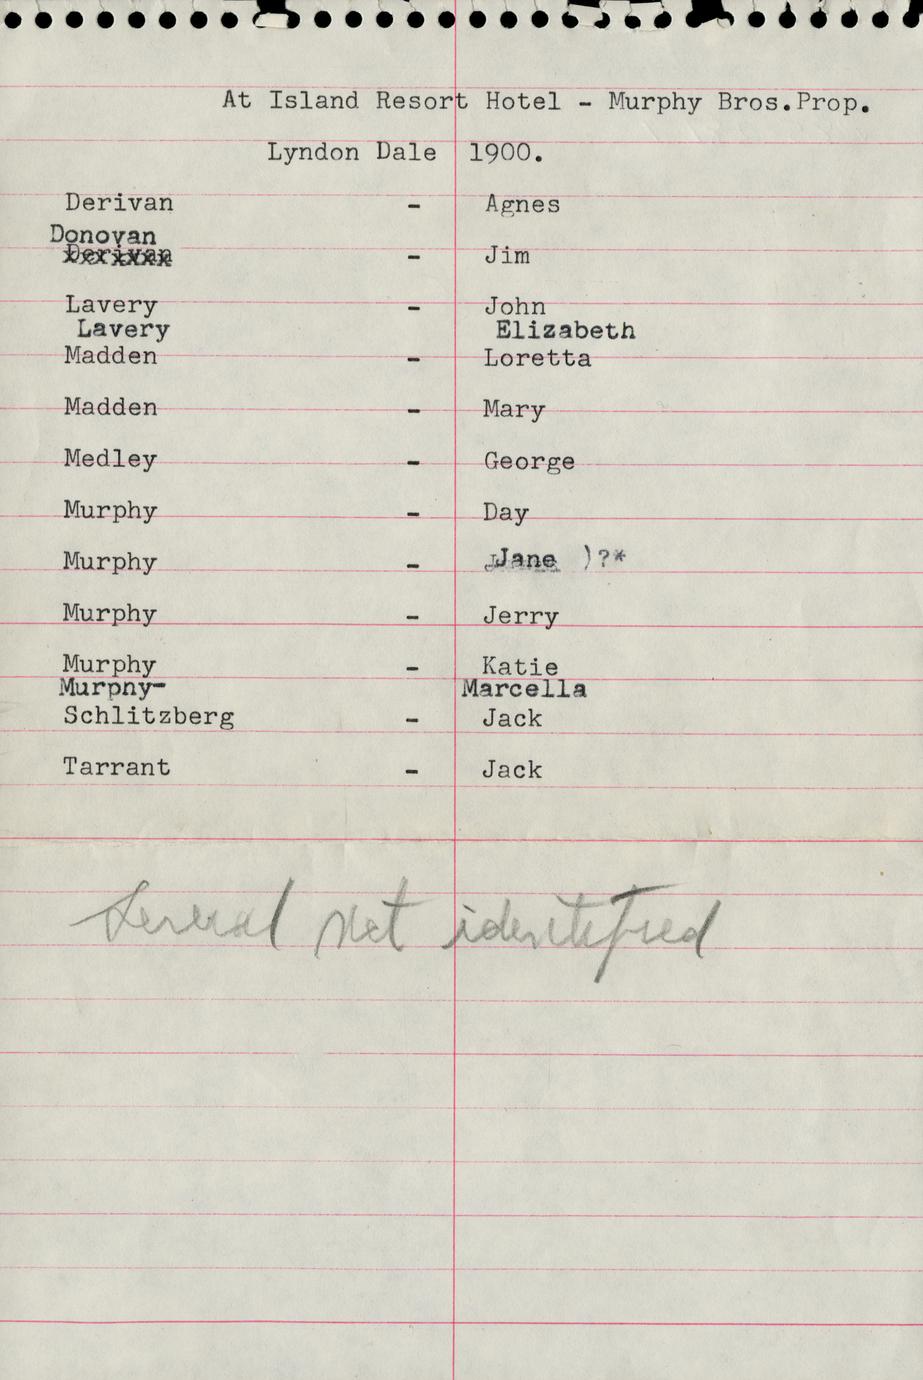 At Island Resort Hotel - Murphy Bros.Prop.
Lyndon Dale 1900.
Derivan - Agnes
Donovan
Derivan - Jim
Lavery - John
Lavery Elizabeth
Madden - Loretta
Madden - Mary
Medley - George
Murphy - Day
Murphy - Jane )?*
Murphy - Jerry
Murphy - Katie
Murpny- Marcella
Schlitzberg - Jack
Tarrant - Jack
Several Not identified